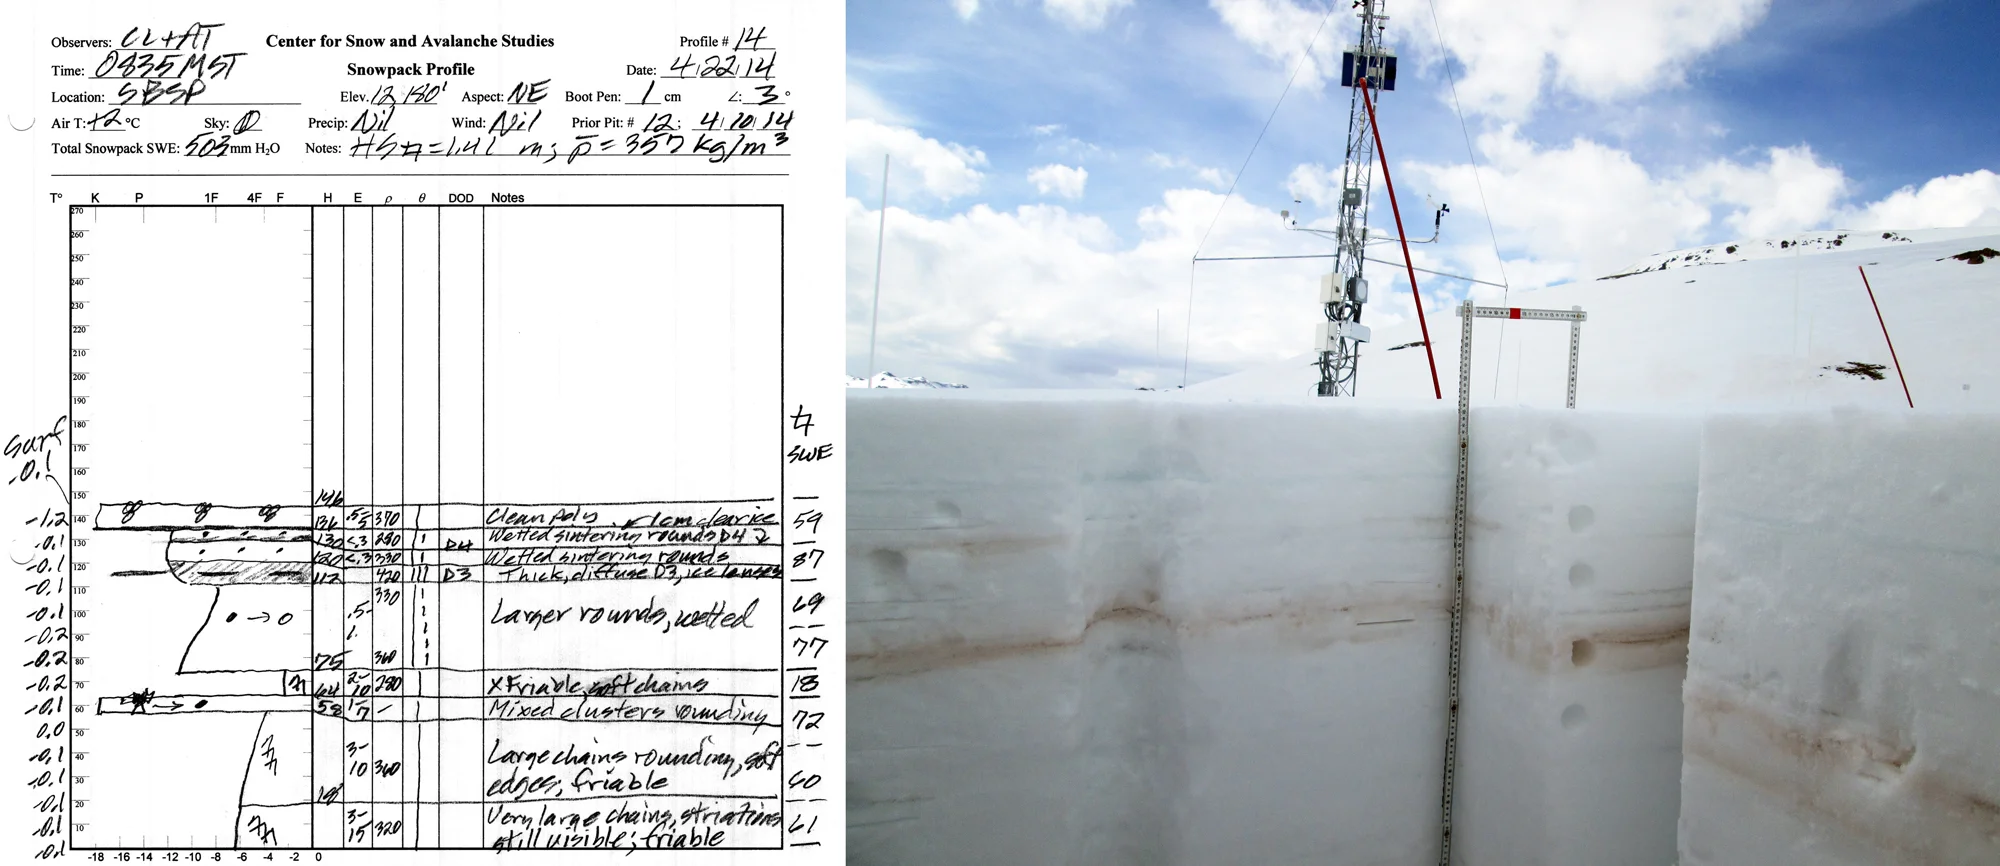 Observers: CL+AT Center for Snow and Avalanche Studies Profile # 14
Time: 0835 MST Snowpack Profile Date: 4/22/14
Location: SBSP Elev. 12,180' Aspect: NE Boot Pen: 1 cm ∠: 3°
Air T: +2 °C Sky: Precip: Nil Wind: Nil Prior Pit: # 12; 4/10/14
Total Snowpack SWE: 503 mm H₂O Notes: = 1.41 m; ρ̄ = 357 kg/m³
T° K P 1F 4F F H E ρ θ DOD Notes
270
260
250
240
230
220
210
200
190
180
Surf 170 SWE
-0.1 160
150 146
-1.2 140 136 .5- 370 Clean poly 1cm clear ice 59
-0.1 130 130 <.3 280 D4 Wetted sintering rounds D4
-0.1 120 120 <.3 330 Wetted sintering rounds 87
112 420 D3 Thick, diffuse D3, ice lenses
-0.1 110 330
-0.1 100 .5- Larger rounds, wetted 69
-0.2 90 1.
-0.2 80 75 360 77
-0.2 70 64 2- 10 280 XFriable, soft chains 18
-0.1 60 58 1- 7 - Mixed clusters rounding 72
0.0 50
-0.1 40 3- 10 360 Large chains rounding, soft
-0.1 30 edges; friable 60
-0.1 20 18
-0.1 10 3- 15 320 Very large chains, striations 61
-0.1 still visible; friable
-18 -16 -14 -12 -10 -8 -6 -4 -2 0